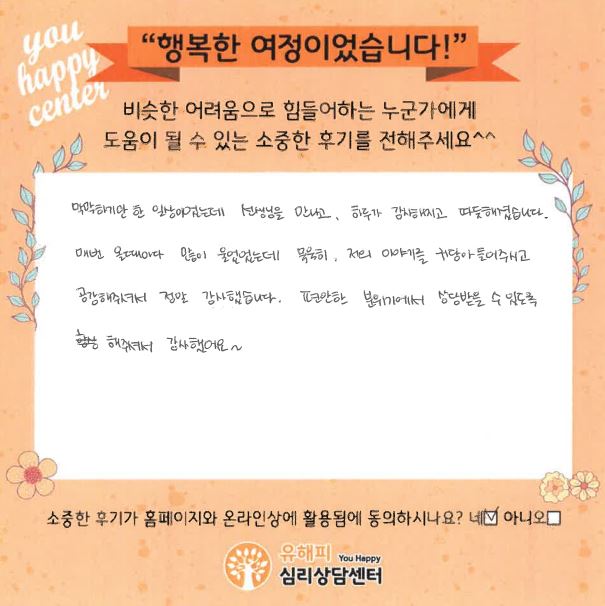 you
happy
center
“행복한 여정이었습니다!”
비슷한 어려움으로 힘들어하는 누군가에게
도움이 될 수 있는 소중한 후기를 전해주세요^^
막막하기만 한 일상이었는데 선생님을 만나고, 하루가 감사해지고 따듯해졌습니다.
매번 올때마다 많이 울었었는데 묵묵히, 저의 이야기를 귀담아 들어주시고
공감해주셔서 정말 감사했습니다. 편안한 분위기에서 상담받을 수 있도록
해주셔서 감사했어요~
소중한 후기가 홈페이지와 온라인상에 활용됨에 동의하시나요? 네☑ 아니오☐
유해피 You Happy
심리상담센터